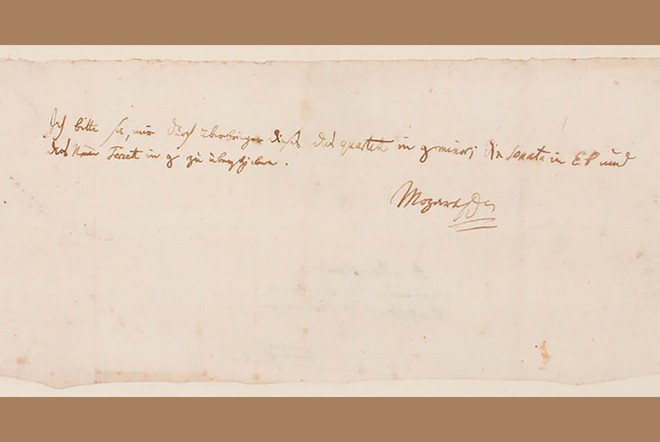 Ich bitte sie, mir durch überbringer dieses das quartett in g minor, die Sonata in E♭ und
das Neue Terzett in g zu überschicken.
Mozart